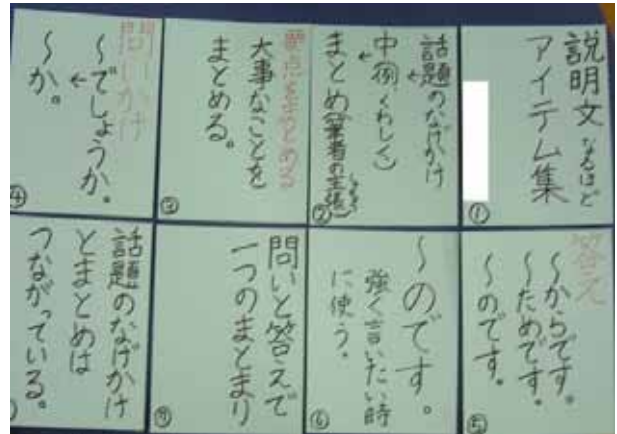 説明文なるほど
アイテム集
①
話題のなげかけ
↓
中(例くわしく)
↓
まとめ(筆者の主張)
②
要点をまとめる
大事なことを
まとめる。
③
問いかけ
〜でしょうか。
↓
〜か。
④
答え
〜からです。
〜ためです。
〜のです。
⑤
〜のです。
強く言いたい時
に使う。
⑥
問いと答えで
一つのまとまり
⑦
話題のなげかけ
とまとめは
つながっている。